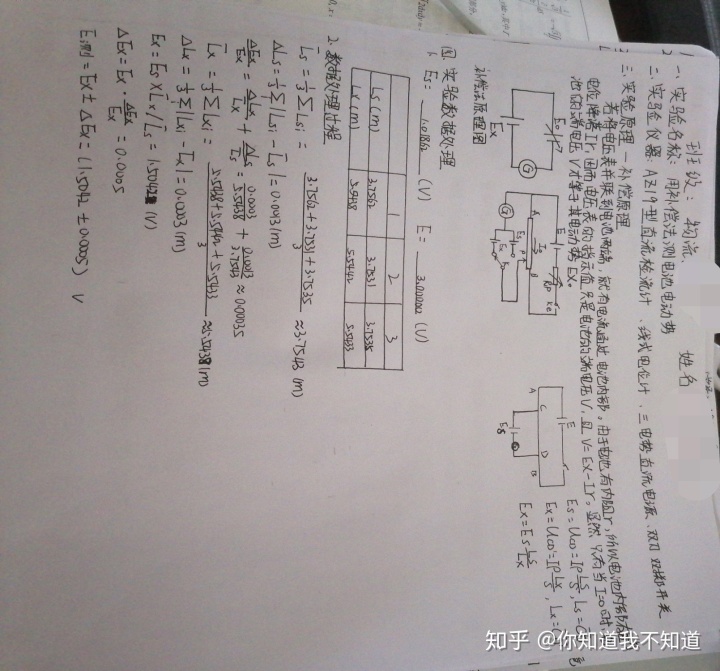 班级：物流 姓名
一、实验名称：用补偿法测电池电动势
二、实验仪器：AZ19型直流检流计、线式电位计、三电势直流电源、双刀双掷开关
三、实验原理—补偿原理
若将电压表并联到电池两端，就有电流通过电池内部，由于电池有内阻r，所以电池内部有
电位降落Ir，因而电压表的指示值只是电池的端电压V，且V=Ex-Ir，显然，只有当I=0时，
池的端电压V才等于其电动势Ex。
补偿法原理图
Es=Ucd=IρLs/S, Ls=
Ex=Ucd=IρLx/S, Lx=
Ex=Es Ls/Lx
四、实验数据处理
1、Es= 1.01862 (V) E= 3.00000 (V)
1 2 3
Ls (m) 3.7562 3.7531 3.7535
Lx (m) 5.5448 5.5442 5.5433
2、数据处理过程
L̄s=1/3ΣLsi=(3.7562+3.7531+3.7535)/3≈3.7543 (m)
ΔLs=1/3Σ|Lsi-L̄s|=0.0013 (m)
ΔEx/Ex=ΔLx/L̄x+ΔLs/L̄s=0.0003/5.5438+0.0013/3.7543≈0.00035
L̄x=1/3ΣLxi=(5.5448+5.5442+5.5433)/3≈5.5438 (m)
ΔLx=1/3Σ|Lxi-L̄x|=0.0003 (m)
Ex=Es×L̄x/L̄s=1.5042 (V)
ΔEx=Ex·ΔEx/Ex=0.0005
E测=Ex±ΔEx=(1.5042±0.0005) V
知乎 @你知道我不知道